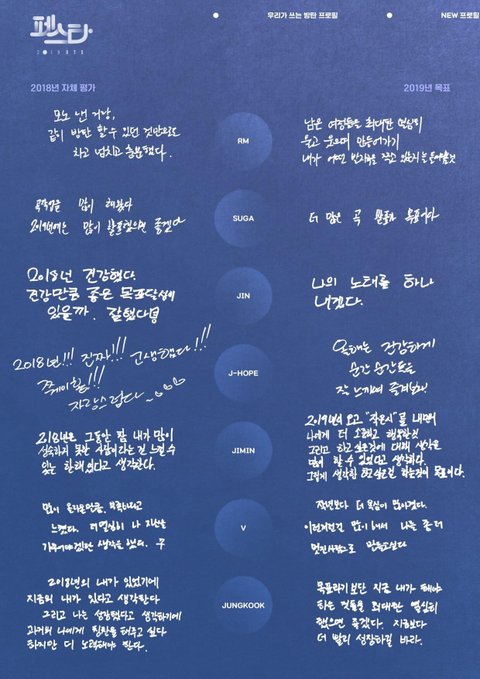 페스타
2019 BTS
우리가 쓰는 방탄 프로필
NEW 프로필
2018년 자체 평가
2019년 목표
모노 낸 거랑,
같이 방탄 할 수 있던 것만으로
차고 넘치고 충분했다.
RM
남은 여정들을 최대한 열심히
웃고 울으며 만들어가기
내가 어떤 반지름을 갖고 있는지
곡작업을 많이 해놨다
2019년에는 많이 발표했으면 좋겠다
SUGA
더 많은 곡 발표가 목표이다
2018년 건강했다.
건강만큼 좋은 목표달성이
있을까. 잘했다
JIN
나의 노래를 하나
내겠다.
2018년!!! 진짜!!! 고생했다!!!
쩨이홉!!!
자랑스럽다~
J-HOPE
올해는 건강하게
순간 순간들을
잘 느끼며 즐겨보자!
2018년은 그동안 참 내가 많이
성숙하지 못한 사람이라는 걸 느낄 수
있는 한해였다고 생각한다.
JIMIN
2019년이 오고 "작은시"를 내면서
나에게 더 소중하고 행복한것
그리고 하고 싶은것에 대해 생각을
많이 할 수 있었다고 생각한다.
그렇게 생각한 하고싶은걸 하는것이 목표이다.
많이 돌아봤던만큼, 부족하다고
느꼈다. 더 열심히 나 자신을
가꾸어야겠단 생각을 했다.
V
작년보다 더 욕심이 많아졌다.
이런저런것 많이 해서 나를 좀 더
멋진사람으로 만들고싶다
2018년의 내가 있었기에
지금의 내가 있다고 생각한다
그리고 나는 성장했다고 생각하기에
과거의 나에게 칭찬을 해주고 싶다
하지만 더 노력해야 한다.
JUNGKOOK
목표라기 보단 지금 내가 해야
하는 것들을 최대한 열심히
했으면 좋겠다. 지금보다
더 빨리 성장하길 바라.